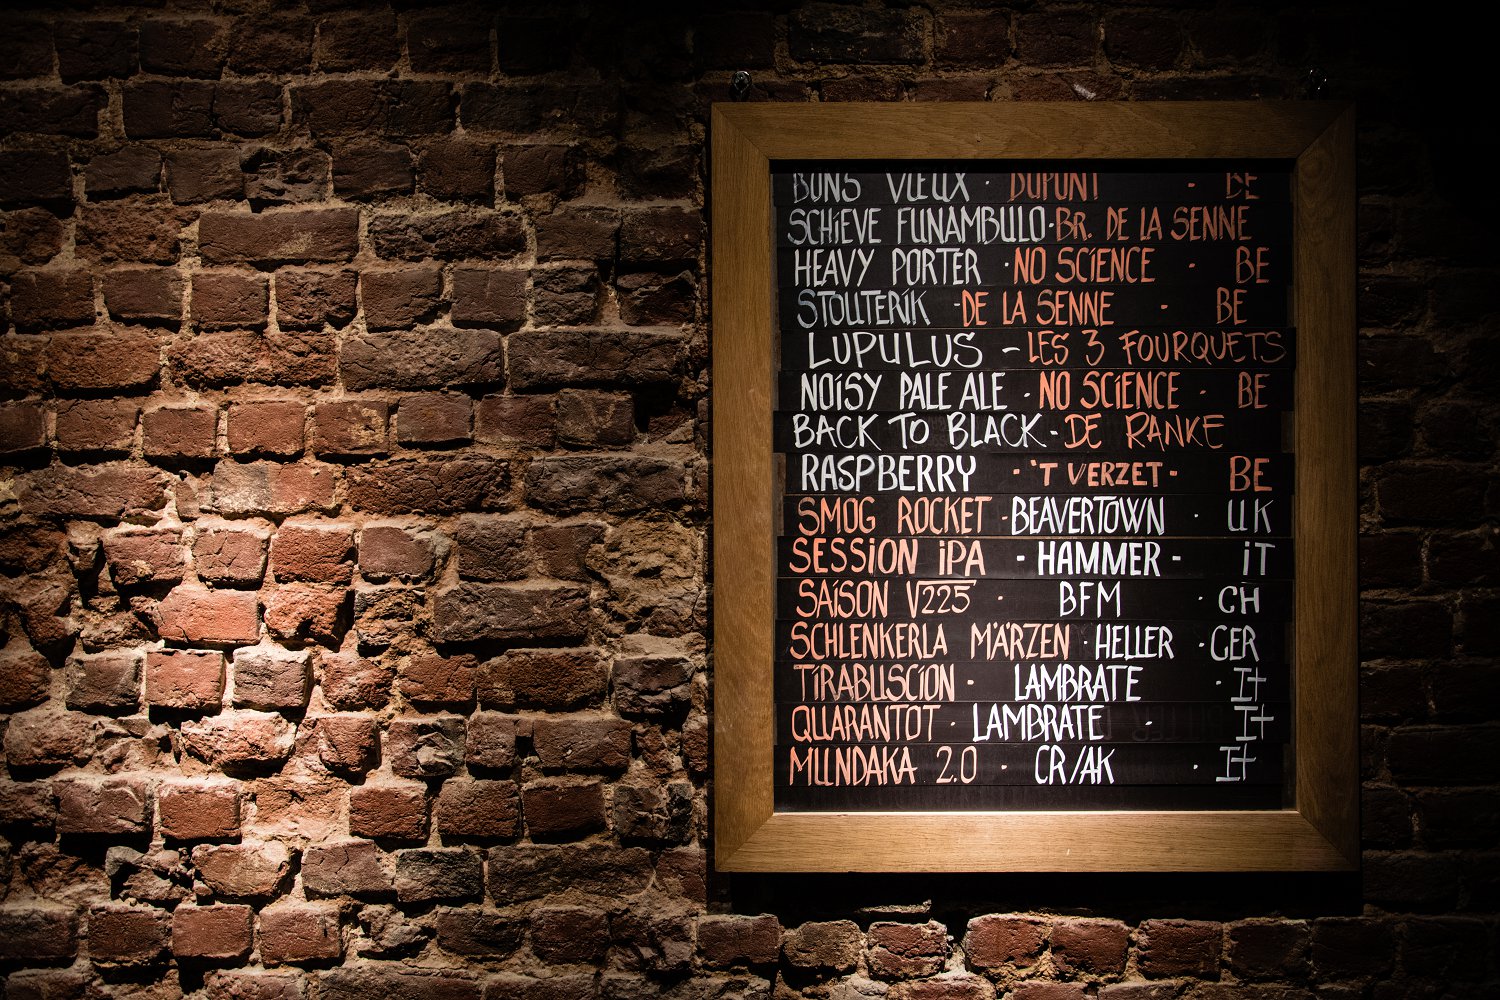 BONS VŒUX · DUPONT - BE
SCHiEVE FUNAMBULO·BR. DE LA SENNE
HEAVY PORTER ·NO SCiENCE - BE
STOUTERiK -DE LA SENNE - BE
LUPULUS - LES 3 FOURQUETS
NOiSY PALE ALE · NO SCiENCE - BE
BACK TO BLACK - DE RANKE
RASPBERRY - 'T VERZET - BE
SMOG ROCKET -BEAVERTOWN · UK
SESSiON iPA - HAMMER - iT
SAiSON √225 · BFM · CH
SCHLENKERLA MÄRZEN · HELLER · GER
TiRABUSCiON - LAMBRATE · It
QUARANTOT · LAMBRATE - It
MUNDAKA 2.0 - CR/AK · It